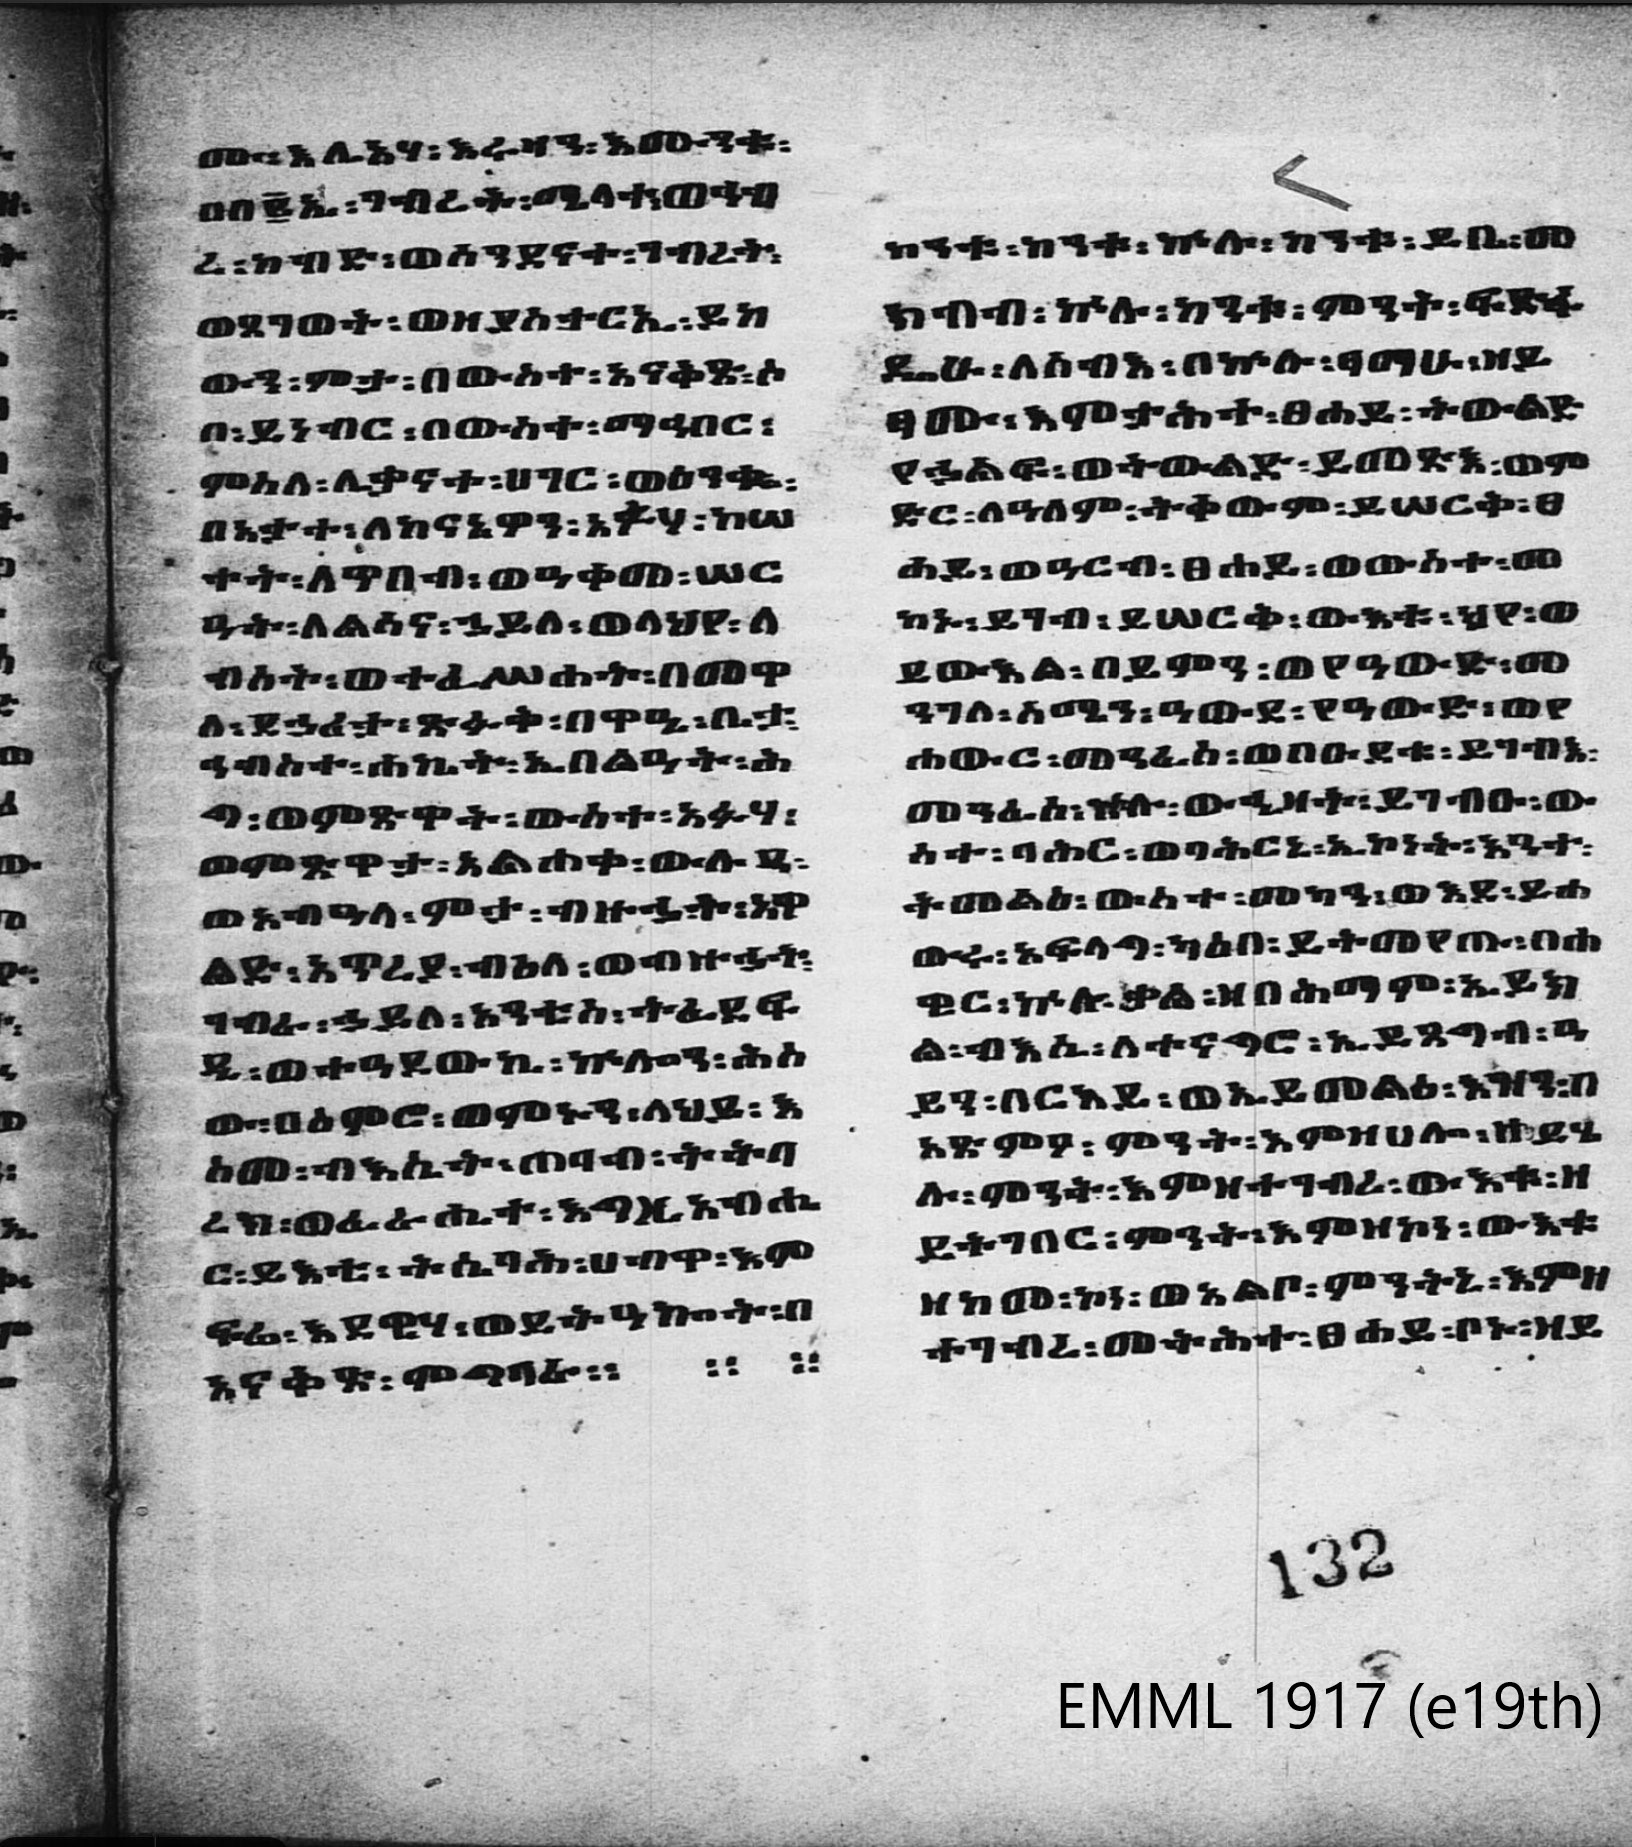 ሙ፡እሌእሃ፡እራዛን፡እሙንቱ፡
ወበ፪ኤ፡ገብረት፡ሜላተ፡ወቀብ
ረ፡ክብድ፡ወሰንደናተ፡ገብረት፡
ወጸገወት፡ወዘያስታርኢ፡ይከ
ውን፡ምታ፡በውስተ፡አናቅጽ፡ሶ
በ፡ይነብር፡በውስተ፡ማኅበር፡
ምስለ፡ሊቃናተ፡ሀገር፡ወዕንቈ፡
በአታተ፡ለከናኔዎን፡አፉሃ፡ከሠ
ተት፡ለጥበብ፡ወዓቀመ፡ሠር
ዓት፡ለልሳና፡ኃይለ፡ወላህየ፡ለ
ብሰት፡ወተፈሥሐት፡በመዋ
ለ፡ደኃሪታ፡ጽፉቅ፡በዋዔ፡ቤታ፡
ኅብስተ፡ሐኬት፡ኢበልዓት፡ሕ
ጛ፡ወምጽዋት፡ውስተ፡አፉሃ፡
ወምጽዋታ፡አልሐቀ፡ውሉዳ፡
ወአብዓላ፡ምታ፡ብዙኃት፡አዋ
ልድ፡አጥረያ፡ብዕለ፡ወብዙኃት፡
ገብራ፡ኃይለ፡አንቲሰ፡ተፈደፍ
ዲ፡ወተዓይውኪ፡ኵሎን፡ሕሰ
ው፡በዕምሮ፡ወምኑን፡ላህይ፡እ
ስመ፡ብእሲት፡ጠባብ፡ትትባ
ረክ፡ወፈራሒተ፡እግዚአብሔ
ር፡ይእቲ፡ትሴባሕ፡ሀብዋ፡እም
ፍሬ፡እደዊሃ፡ወይትዓኰት፡በ
አናቅጽ፡ምግባራ፡፡ ፡፡ ፡፡
ከንቱ፡ከንቱ፡ኵሉ፡ከንቱ፡ይቤ፡መ
ክብብ፡ኵሉ፡ከንቱ፡ምንት፡ፍድፋ
ዴሁ፡ለሰብእ፡በኵሉ፡ፃማሁ፡ዘይ
ፃሙ፡እምታሕተ፡ፀሐይ፡ትውልድ
የኃልፍ፡ወትውልድ፡ይመጽእ፡ወም
ድር፡ለዓለም፡ትቀውም፡ይሠርቅ፡ፀ
ሐይ፡ወዓርብ፡ፀሐይ፡ወውስተ፡መ
ካኑ፡ይገብ፡ይሠርቅ፡ውእቱ፡ህየ፡ወ
ይውእል፡በይምን፡ወየዓውድ፡መ
ንገለ፡ሰሜን፡ዓውደ፡የዓውድ፡ወየ
ሐውር፡መንፈስ፡ወበዑደቱ፡ይገብእ፡
መንፈስ፡ኵሉ፡ውሒዛት፡ይገብዑ፡ው
ስተ፡ባሕር፡ወባሕርኒ፡ኢኮነት፡እንተ፡
ትመልዕ፡ውስተ፡መካን፡ወእደ፡ይሐ
ውሩ፡አፍላግ፡ካዕበ፡ይትመየጡ፡በሐ
ዊር፡ኵሉ፡ቃል፡ዘበሕማም፡ኢይክ
ል፡ብእሲ፡ለተናግሮ፡ኢይጸግብ፡ዓ
ይን፡በርእይ፡ወኢይመልዕ፡እዝን፡በ
አጽምዖ፡ምንት፡እምዘሀሎ፡ዘይሄ
ሉ፡ምንት፡እምዘተገብረ፡ውእቱ፡ዘ
ይትገበር፡ምንት፡እምዘኮነ፡ውእቱ
ዘከመ፡ኮነ፡ወአልቦ፡ምንትኒ፡እምዘ
ተገብረ፡መትሕተ፡ፀሐይ፡ቦኑ፡ዘይ
132
EMML 1917 (e19th)